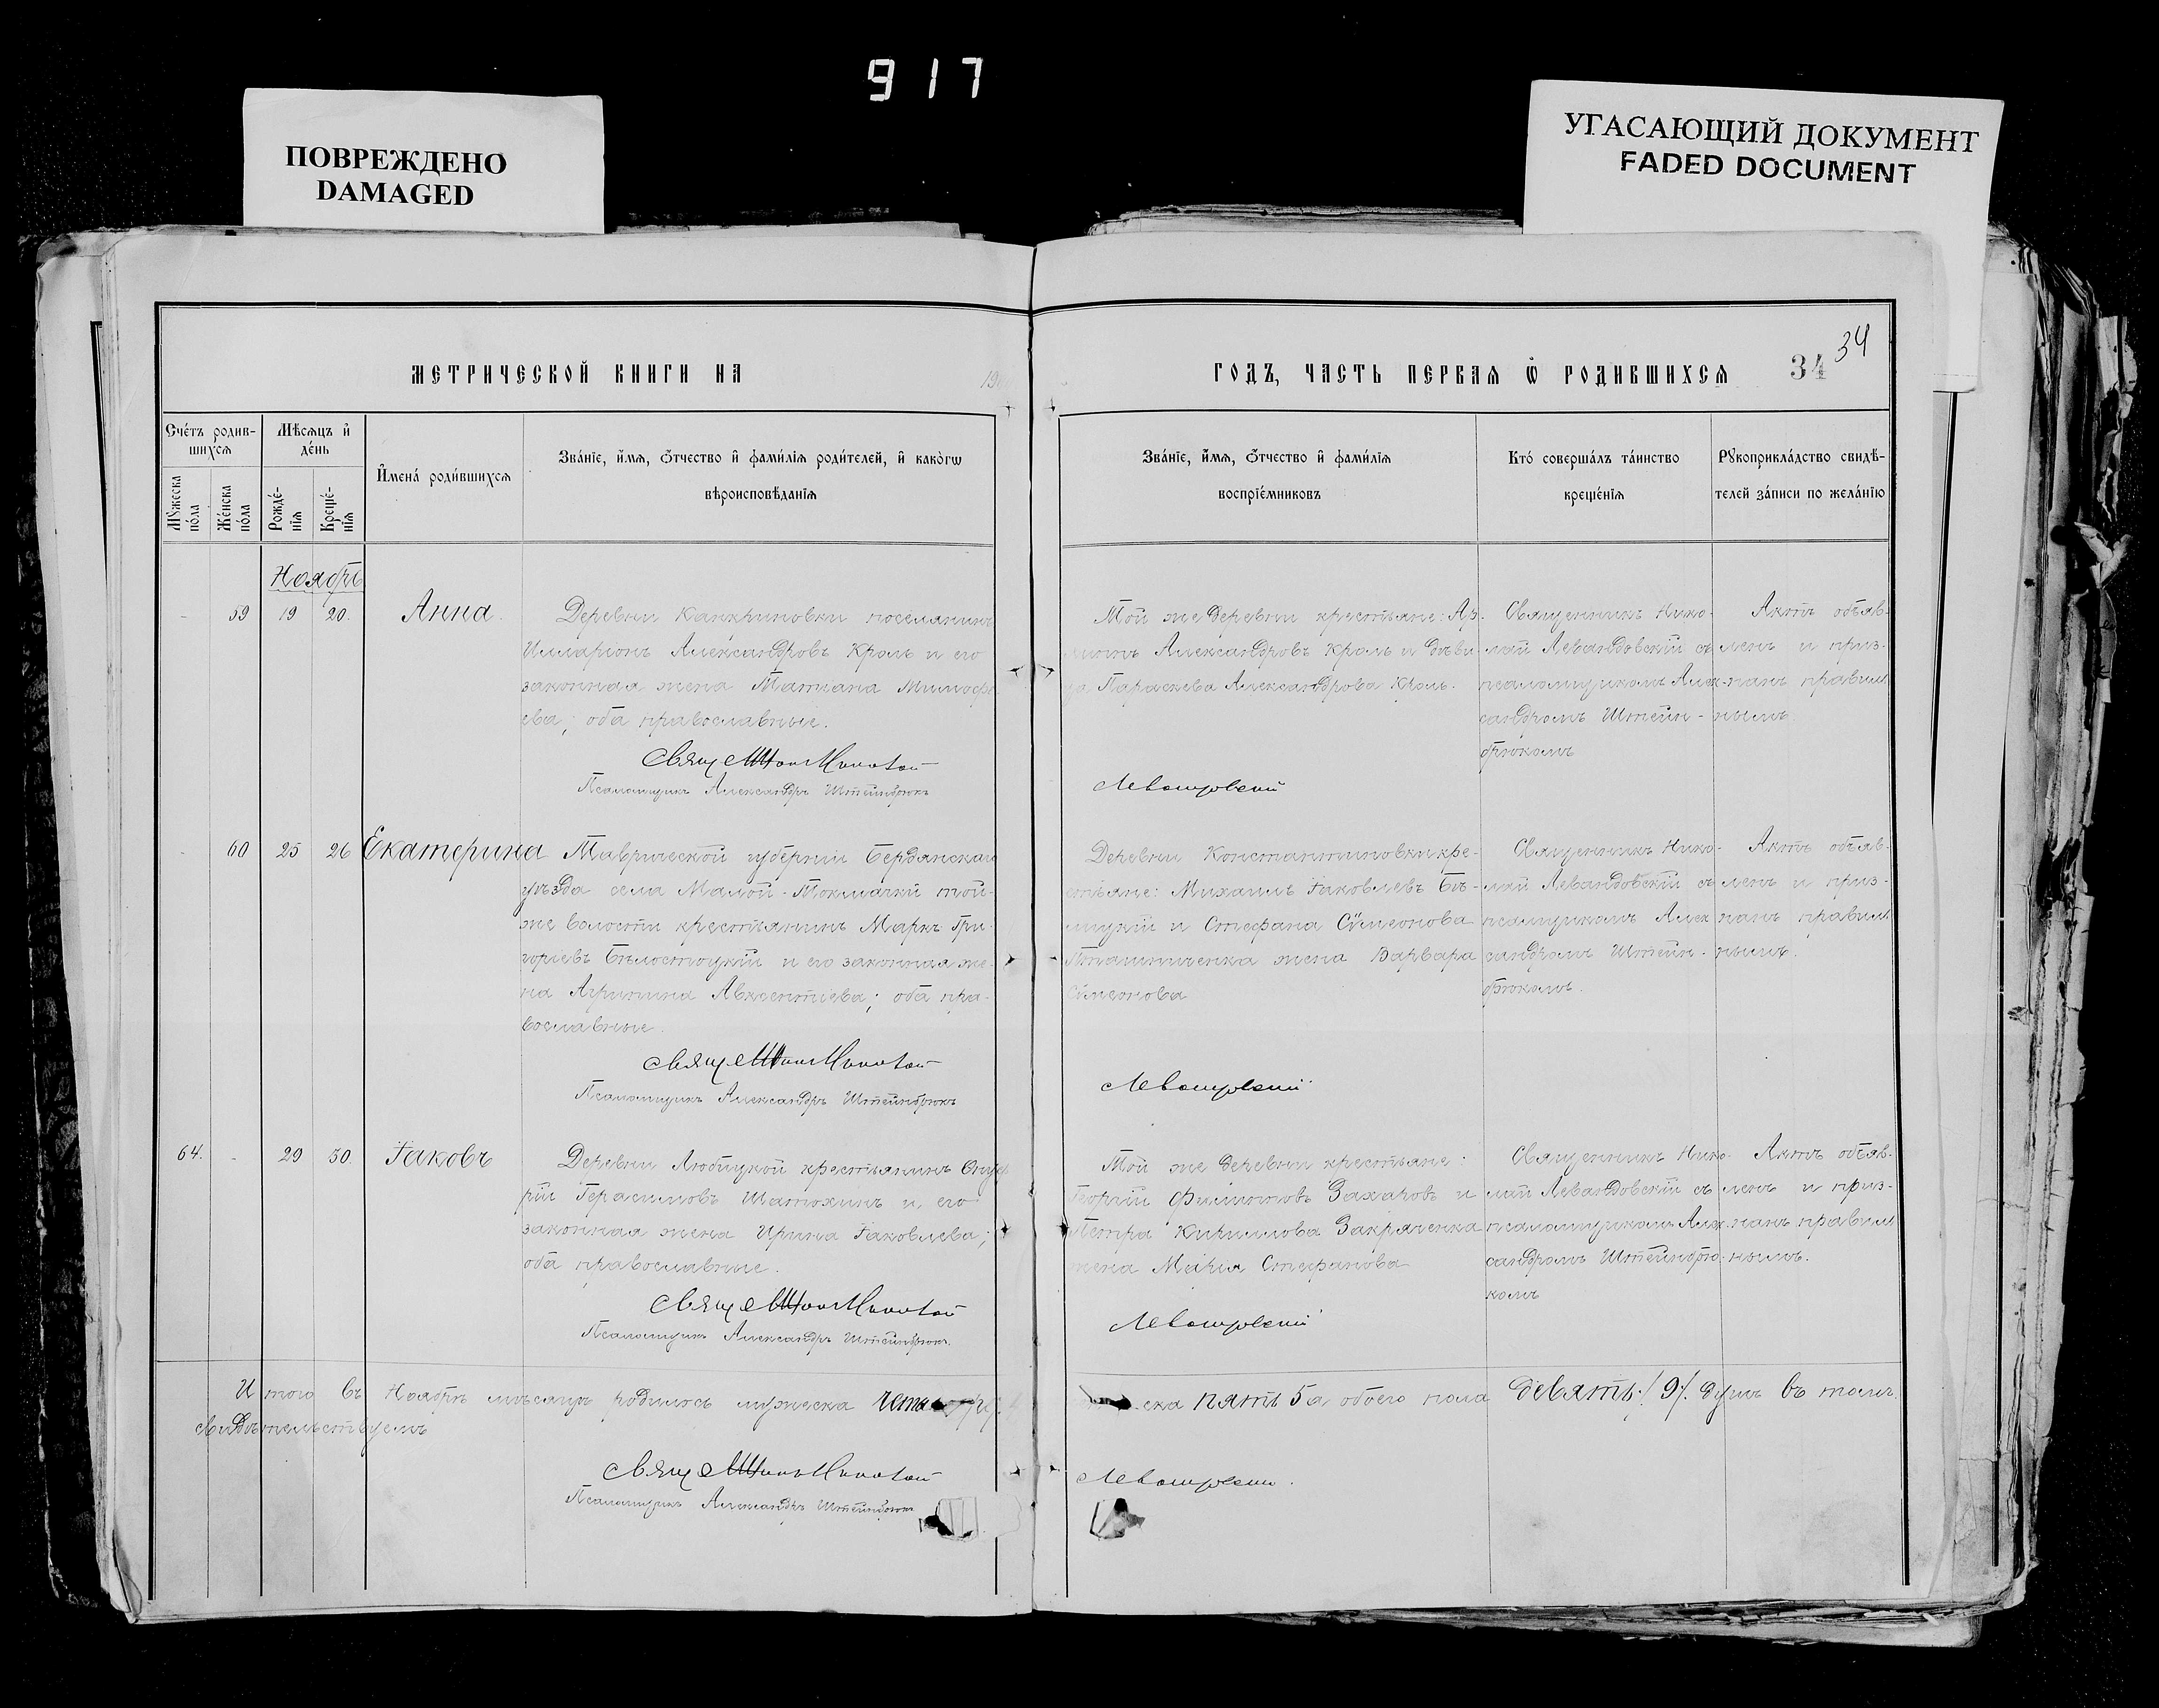 917
ПОВРЕЖДЕНО
DAMAGED
УГАСАЮЩИЙ ДОКУМЕНТ
FADED DOCUMENT
МЕТРИЧЕСКОЙ КНИГИ НА
19
ГОДЪ, ЧАСТЬ ПЕРВАЯ Ѽ РОДИВШИХСЯ
34
34
Сче́тъ родив-
шихся
Мѣсяцъ и
де́нь
Мꙋжеска по́ла
Же́нска по́ла
Рожде́-
нія
Креще́-
нія
Имена́ роди́вшихся
Зва́ніе, и́мя, ѻ́тчество и фами́лія роди́телей, и како́гѡ
вѣроисповѣ́данія
Зва́ніе, и́мя, ѻ́тчество и фами́лія
воспріе́мниковъ
Кто́ соверша́лъ та́инство
креще́нія
Рꙋкоприкла́дство свидѣ́-
телей за́писи по жела́нію
Ноябрь
59 19 20. Анна.
Деревни Канкриновки поселянинъ
Илларіонъ Александровъ Кроль и его
законная жена Татіана
ева; оба православные.
Свящ
Псаломщикъ Александръ Штейнбрюкъ
Той же деревни крестьяне:
Александровъ Кроль и дѣви-
ца Параскева Александрова Кроль.
Левандовскій
Священникъ Нико-
лай Левандовскій съ
псаломщикомъ Алек-
сандромъ Штейн-
брюкомъ
Актъ объяв-
ленъ и приз-
нанъ правиль
нымъ
60 25 26 Екатерина
Таврической губерніи Бердянскаго
уѣзда села Малой-Токмачки той-
же волости крестьянинъ Маркъ Гри-
горіевъ Бѣлостоцкій и его законная же-
на Агрипина Авксентіева; оба пра-
вославные.
Свящ
Псаломщикъ Александръ Штейнбрюкъ
Деревни Константиновки кре-
стьяне: Михаилъ Іаковлевъ Бѣ-
лицкій и Стефана Сѵмеонова
жена Варвара
Сѵмеонова
Левандовскій
Священникъ Нико-
лай Левандовскій съ
псаломщикомъ Алек
сандромъ Штейн-
брюкомъ.
Актъ объяв-
ленъ и приз-
нанъ правиль
нымъ.
64. 29 30. Іаковъ
Деревни Любицкой крестьянинъ
рій Герасимовъ Шатохинъ и его
законная жена Ирина Іаковлева;
оба православные.
Свящ
Псаломщикъ Александръ Штейнбрюкъ.
Той же деревни крестьяне:
Георгій Филипповъ Захаровъ и
Петра Кириллова Закряченка
жена Марія Стефанова
Левандовскій
Священникъ Нико-
лай Левандовскій съ
псаломщикомъ Алек-
сандромъ Штейнбрю-
комъ
Актъ объяв-
ленъ и приз-
нанъ правиль
нымъ.
Итого въ Ноябрѣ мѣсяцѣ родилось мужеска четыре
ска пять 5 а обоего пола девять /9/. душъ въ томъ
свидѣтельствуемъ
Свящ
Псаломщикъ Александръ Штейнбрюкъ
Левандовскій.